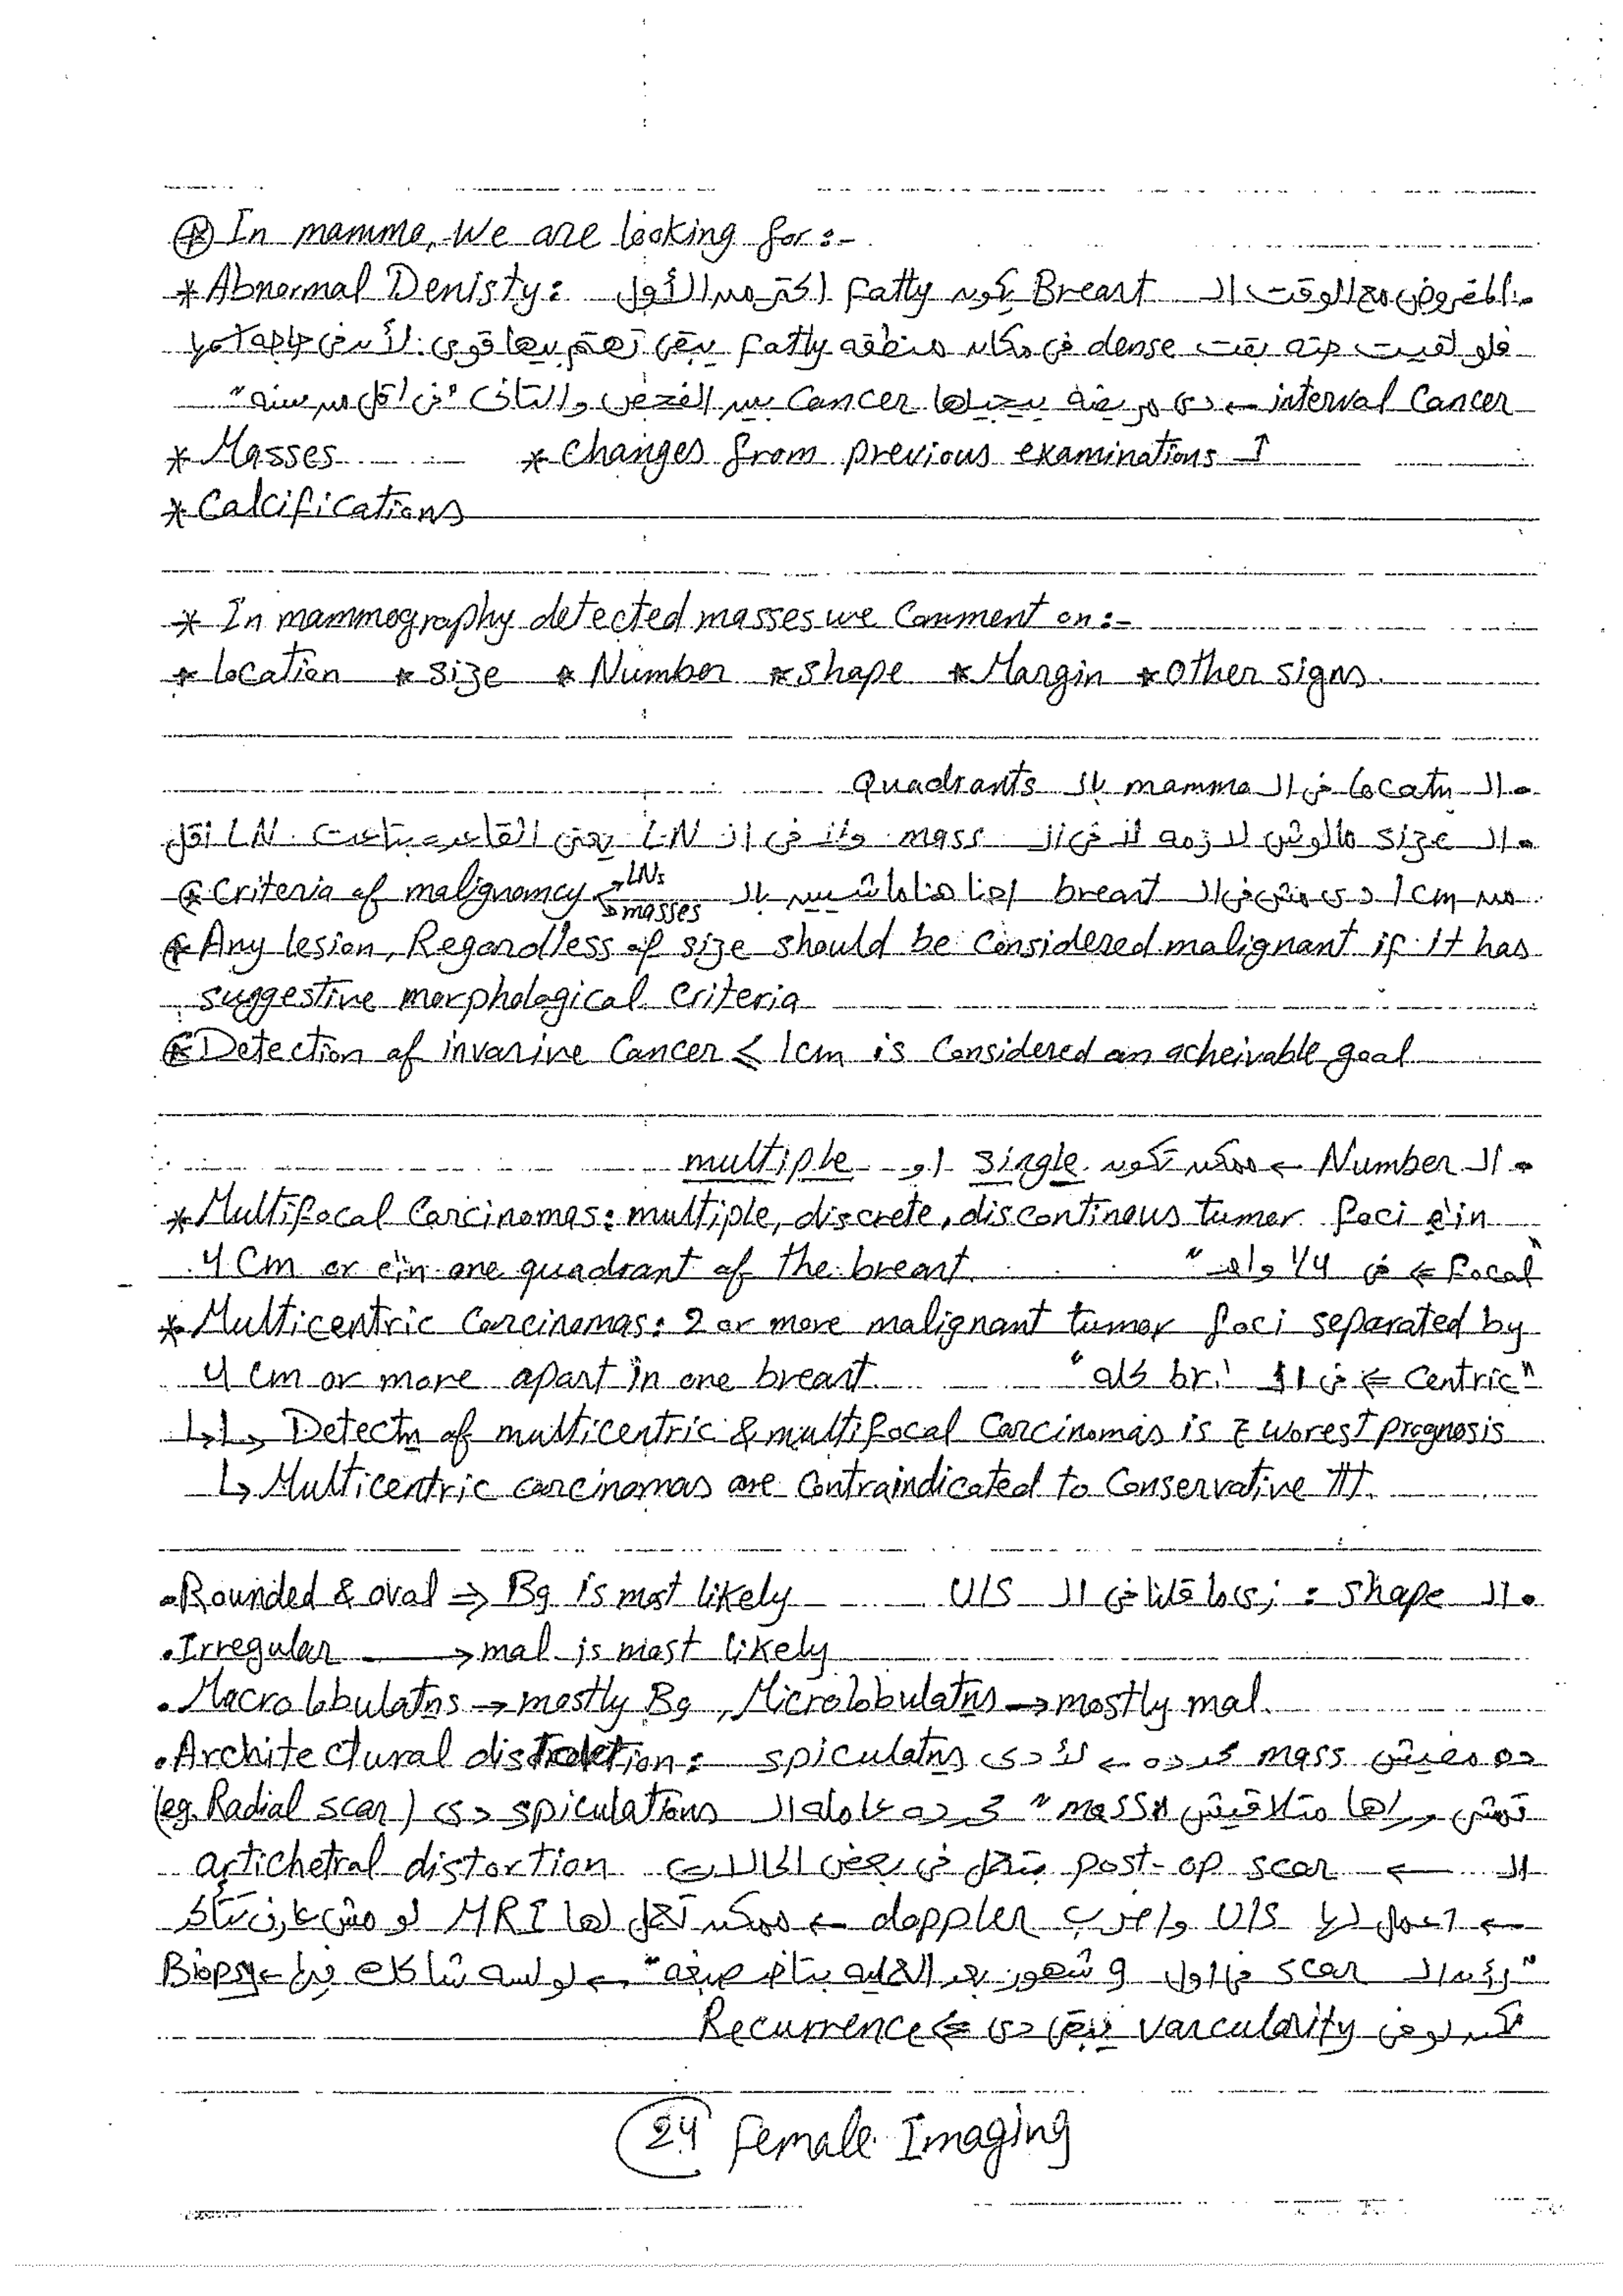 ⊛ In mammo, We are looking for:-
* Abnormal Denisty: المفروض مع الوقت ال Breast يكون Fatty اكتر من الأول
فلو لقيت حته بقت dense فى مكان منطقه Fatty يبقى تهتم بيها قوى. لأن فى حاجه اسمها
interval Cancer ← دى مريضه بيجيلها Cancer بين الفحص والتانى "فى أقل من سنه"
* Masses * changes from previous examinations ↑
* Calcifications
* In mammography detected masses we Comment on:-
* location * size * Number * shape * Margin * other signs.
• ال Locatn فى ال mammo بال Quadrants
• ال size مالوش لازمه لا فى ال mass ولا فى ال LN يعنى القاعده بتاعت LN أقل
من 1cm دى مش فى ال breast احنا هنا ماشيين بال Criteria of malignancy → LNs → masses
⊛ Any lesion, Regardless of size should be Considered malignant if it has
suggestive morphological criteria
⊛ Detection of invasive Cancer ≤ 1cm is Considered an acheivable goal
• ال Number ← ممكن تكون single او multiple
* Multifocal Carcinomas: multiple, discrete, discontineus tumer foci e'in
4 Cm or e'in one quadrant of the breast. "focal ⇐ فى 1/4 واحد"
* Multicentric Carcinomas: 2 or more malignant tumor foci separated by
4 Cm or more apart in one breast. "Centric ⇐ فى ال br. كله"
↳↳ Detectn of multicentric & multifocal Carcinomas is c̄ worest prognosis
↳ Multicentric carcinomas are Contraindicated to Conservative TTT.
• ال shape : زى ما قلنا فى ال U/S
• Rounded & oval ⇒ Bg is most likely
• Irregular → mal is most likely
• Macrolobulatns → mostly Bg, Microlobulatns → mostly mal.
• Architectural distortion: ده مفيش mass محدده ← لأ دى spiculatns
تمشى وراها متلاقيش "mass" محدده عامله ال spiculations دى (eg. Radial scar)
ال ← post-op scar بتعمل فى بعض الحالات artichetral distortion
← اعمل لها U/S واضرب doppler ← ممكن تعمل لها MRI لو مش عارف تتأكد
" ال scar فى اول 9 شهور بعد العمليه بتاخد صبغه" ← لو لسه شاكك فيها ← Biopsy
لو فى vascularity يبقى دى ⇐ Recurrence
24 Female Imaging